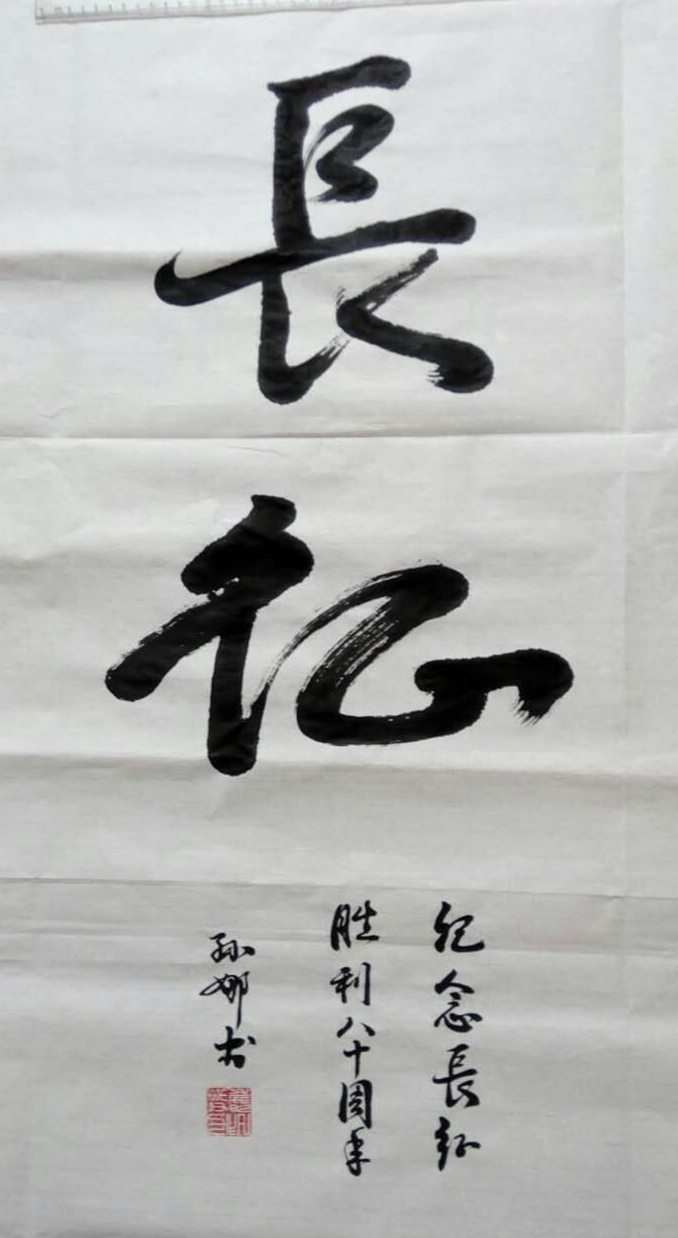 長征
纪念長征
胜利八十周年
孙娜书